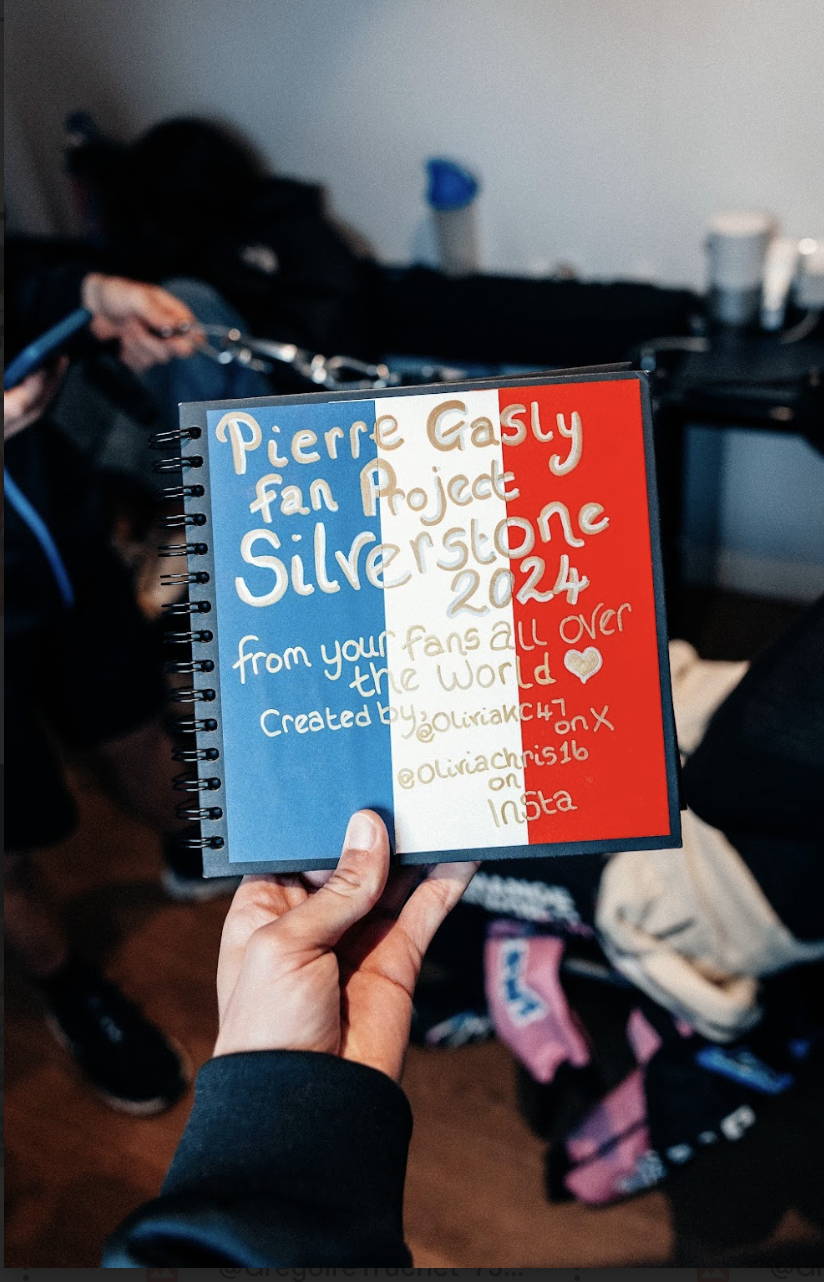 Pierre Gasly
fan Project
Silverstone
2024
from your fans all over
the World
Created by; @OliviaKC47
on X
@Oliviachris16
on
InSta